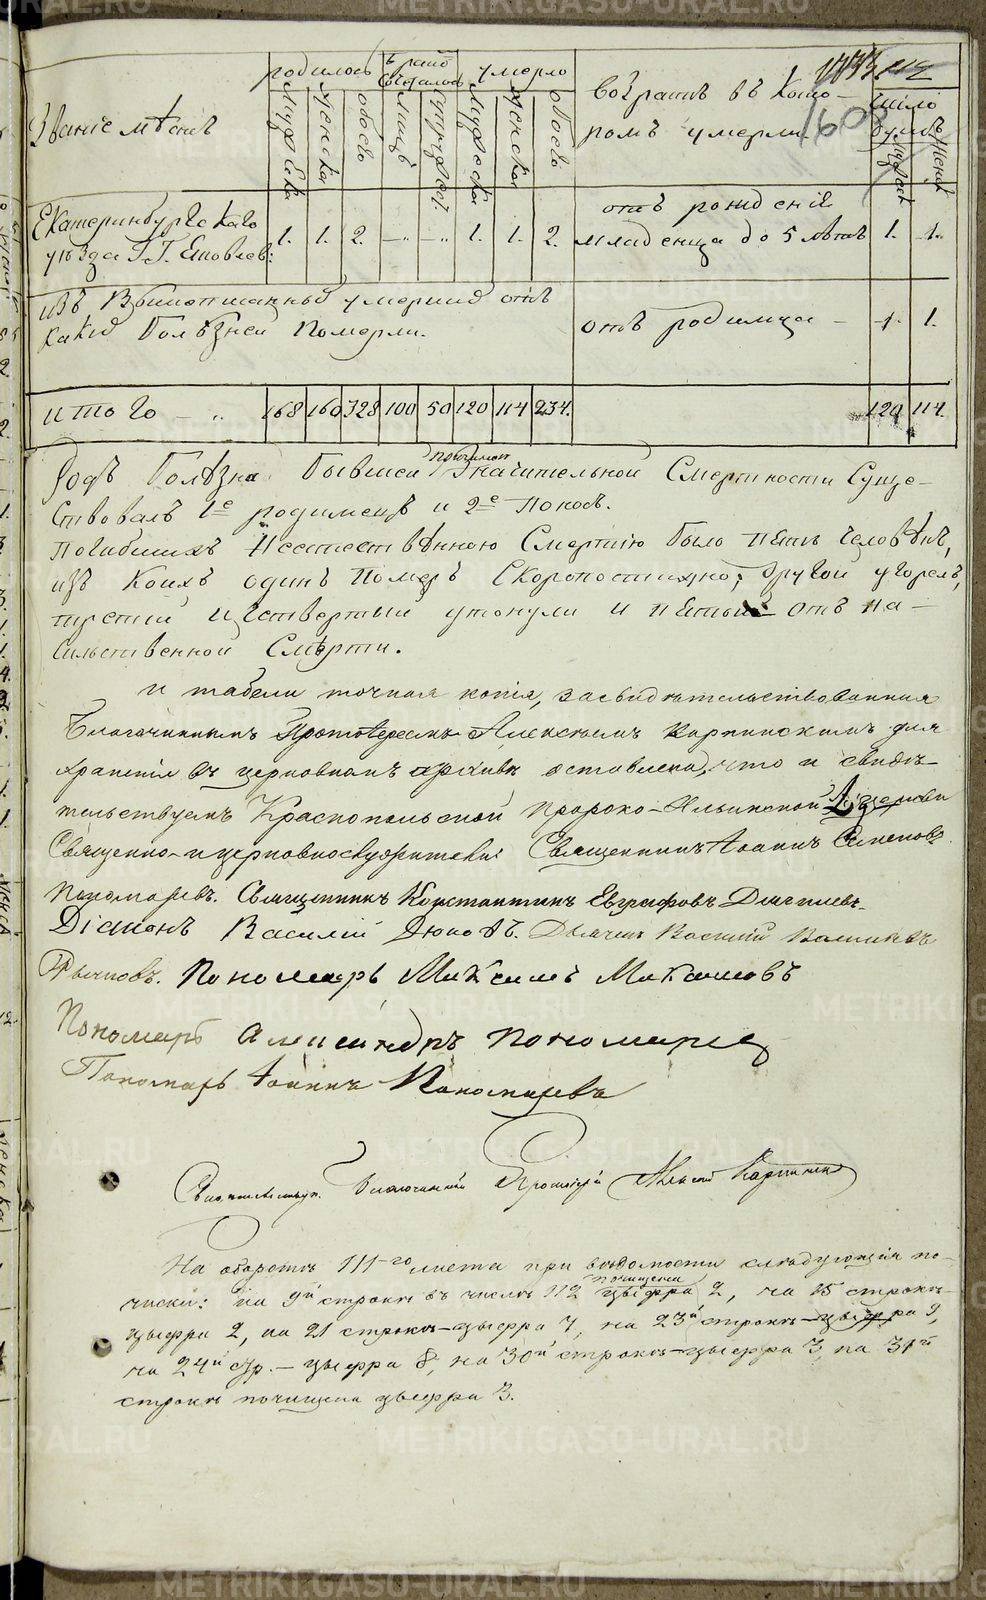 METRIKI.GASO-URAL.RU
Званіе мѣстъ
родилось
Мужеска
Женска
обоего
Въ бракѣ сочеталось
Лицъ
Умерло
Мужеска
Женска
Обоего
Возрастъ въ кото-
ромъ умерли.
160
Число
Женск
Екатеринбургскаго
уѣзда Гг. Яковлев:
1. 1. 2. -„- -„- 1. 1. 2.
отъ рожденія
младенца до 5 лѣтъ 1. 1.
изъ вышеписанныхъ умершихъ отъ
какихъ болѣзней померли.
отъ родимца - 1. 1.
итого - „ 168 160 328 100 50 120 114 234.
120 114.
Родъ болѣзни бывшей значительной Смертности Суще-
ствовалъ 1е родимецъ и 2е Поносъ.
Погибшихъ Неестественною Смертію было пять человѣкъ,
изъ коихъ одинъ померъ Скоропостижно, другой угорелъ,
третій и четвертый утонули и пятый отъ на-
сильственной Смерти.
и табели точная копія, засвидѣтельствованная
Благочиннымъ Протоіереемъ Алексѣемъ Карпинскимъ для
храненія въ церковномъ архивѣ оставлена, что и свидѣ-
тельствуемъ Краснопольской Пророко-Ильинской церкви
Священно-и церковнослужители: Священникъ Іоаннъ Симеоновъ
Пономаревъ. Священникъ Константинъ Евграфовъ
Діаконъ Василій Дюковъ. Дьячекъ Василій
Пономарь Максимъ Максимовъ
Пономарь Александръ Пономаревъ
Пономарь Іоаннъ Пономаревъ
Благочинный Протоіерей Алексѣй Карпинскій
На оборотѣ 111-го листа при вѣдомости слѣдующія по-
чистки: на 9й строкѣ въ числѣ 112 почищена цыфра 2, на 15 строкѣ
цыфра 2, на 21 строкѣ - цыфра 7, на 23й строкѣ - цыфра 9,
на 24й стр. - цыфра 8, на 30й строкѣ - цыфра 3, на 31й
строкѣ почищена цыфра 3.